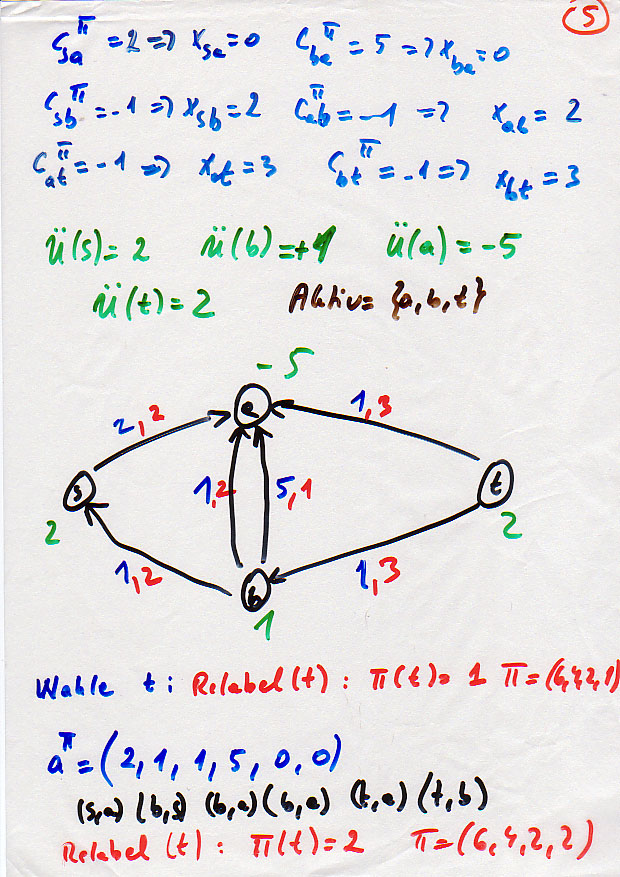 5
C_sa^π = 2 => x_sa = 0 C_ba^π = 5 => x_ba = 0
C_sb^π = -1 => x_sb = 2 C_ab^π = -1 => x_ab = 2
C_at^π = -1 => x_at = 3 C_bt^π = -1 => x_bt = 3
ü(s) = 2 ü(b) = +1 ü(a) = -5
ü(t) = 2 Aktiv = {a, b, t}
-5
a
2,2 1,3
s 1,2 5,1 t
2 2
1,2 1,3
b
1
Wähle t : Relabel (t) : π(t) = 1 π = (6,4,2,1)
a^π = (2, 1, 1, 5, 0, 0)
(s,a) (b,s) (b,a) (b,a) (t,a) (t,b)
Relabel (t) : π(t) = 2 π = (6, 4, 2, 2)